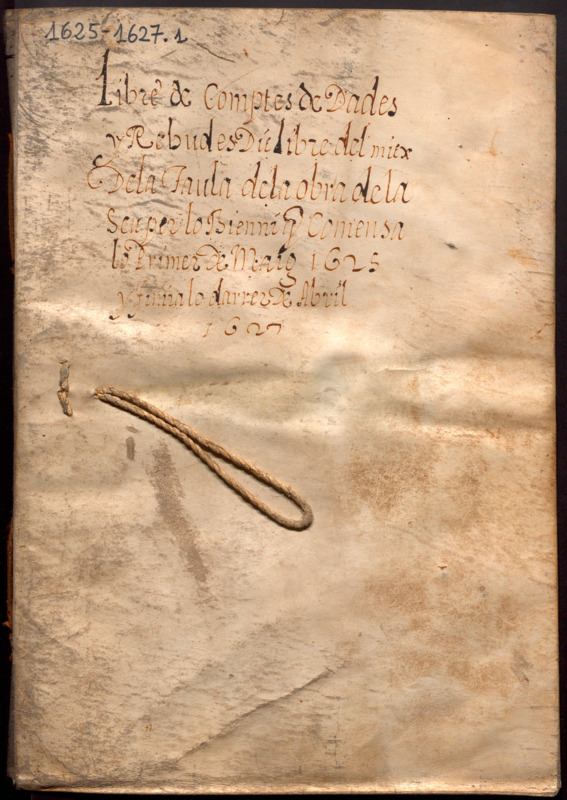 1625-1627.1
Libre de Comptes de Dades
y Rebudes Die libre del miex
De la Taula de la obra de la
Seu per lo Bienni q̃ Comensa
lo Primer de Maig 1625
y finira lo darrer de Abril
1627